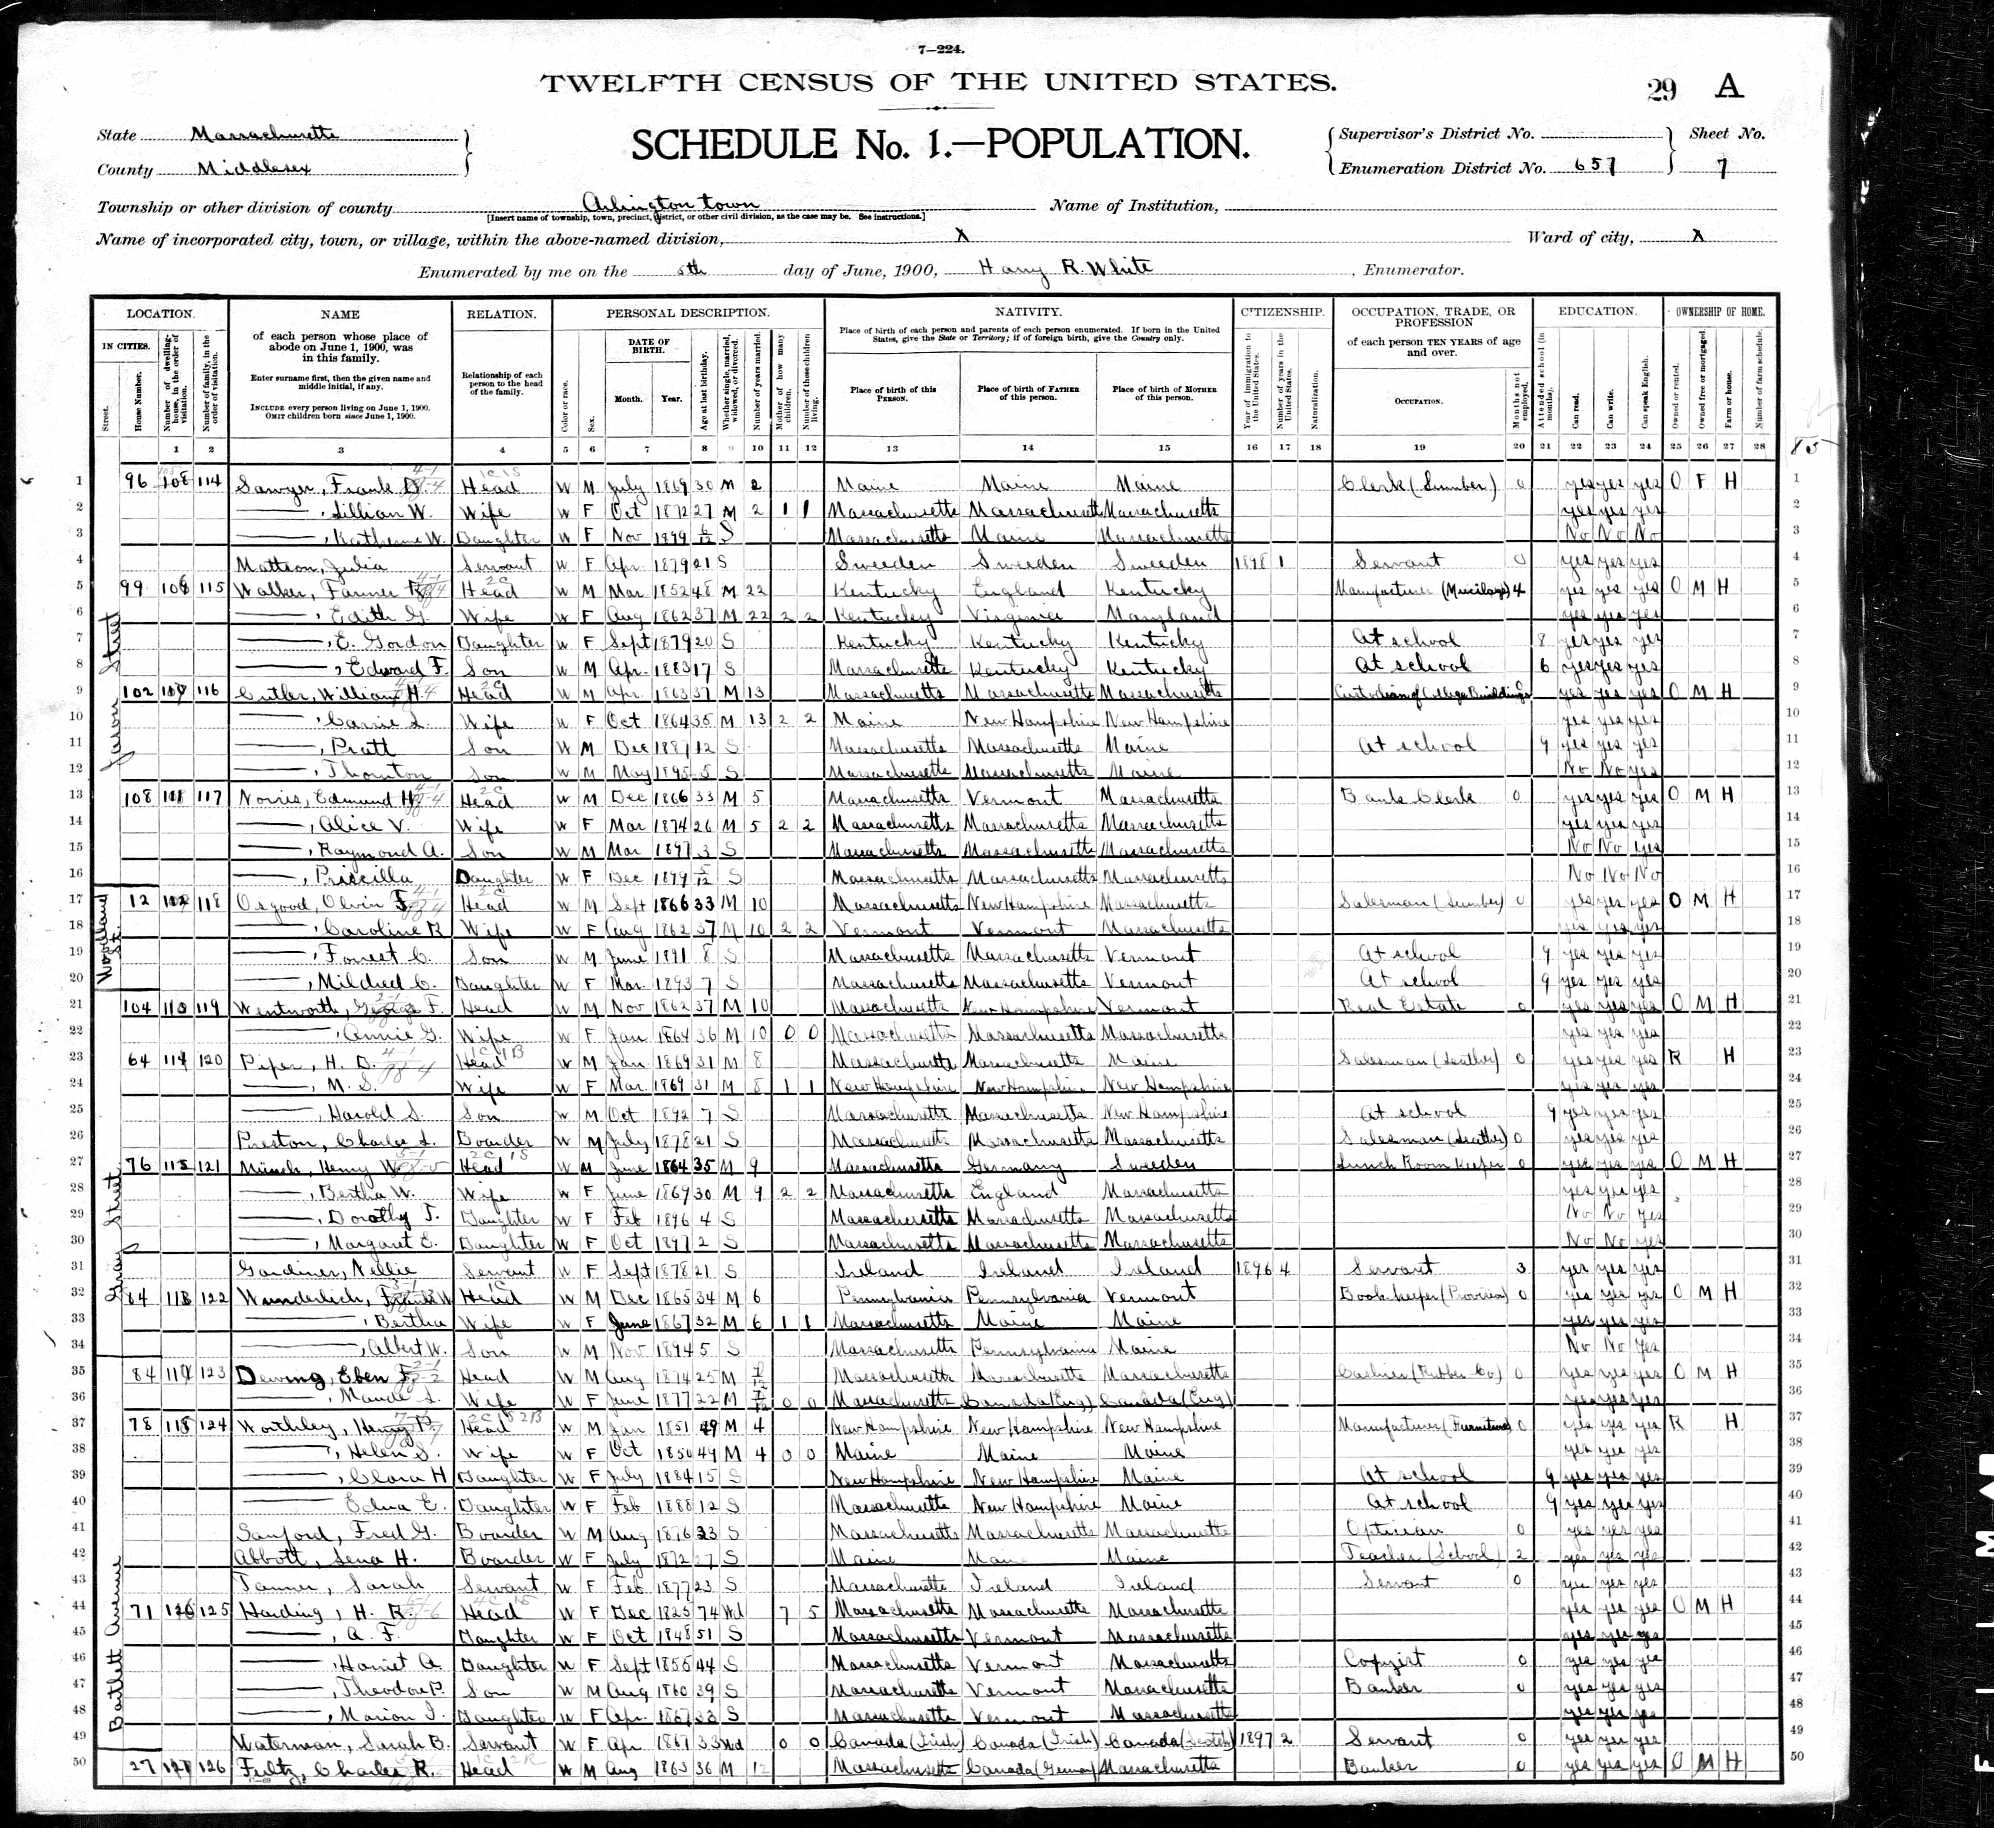 7—224.
TWELFTH CENSUS OF THE UNITED STATES.
29 A
State Massachusetts
County Middlesex
SCHEDULE No. 1.—POPULATION.
Supervisor's District No.
Enumeration District No. 657
Sheet No.
7
Township or other division of county Arlington town
[Insert name of township, town, precinct, district, or other civil division, as the case may be. See instructions.]
Name of Institution, X
Name of incorporated city, town, or village, within the above-named division, X
Ward of city, X
Enumerated by me on the 5th day of June, 1900, Harry R. White, Enumerator.
LOCATION. NAME RELATION. PERSONAL DESCRIPTION. NATIVITY. CITIZENSHIP. OCCUPATION, TRADE, OR PROFESSION EDUCATION. OWNERSHIP OF HOME.
IN CITIES. Street. House Number. Number of dwelling-house, in the order of visitation. Number of family, in the order of visitation.
of each person whose place of abode on June 1, 1900, was in this family.
Enter surname first, then the given name and middle initial, if any.
INCLUDE every person living on June 1, 1900. OMIT children born since June 1, 1900.
Relationship of each person to the head of the family.
Color or race. Sex. DATE OF BIRTH. Month. Year. Age at last birthday. Whether single, married, widowed, or divorced. Number of years married. Mother of how many children. Number of these children living.
Place of birth of each person and parents of each person enumerated. If born in the United States, give the State or Territory; if of foreign birth, give the Country only.
Place of birth of this PERSON. Place of birth of FATHER of this person. Place of birth of MOTHER of this person.
Year of immigration to the United States. Number of years in the United States. Naturalization.
of each person TEN YEARS of age and over.
OCCUPATION. Months not employed.
Attended school (in months). Can read. Can write. Can speak English.
Owned or rented. Owned free or mortgaged. Farm or house. Number of farm schedule.
1 2 3 4 5 6 7 8 9 10 11 12 13 14 15 16 17 18 19 20 21 22 23 24 25 26 27 28
1 96 114 Sawyer, Frank Head W M July 1869 30 M 2 Maine Maine Maine Clerk (Lumber) 0 yes yes yes O F H 1
2 , Lillian W. Wife W F Oct 1872 27 M 2 1 1 Massachusetts Massachusetts Massachusetts yes yes yes 2
3 , Katherine W. Daughter W F Nov 1899 6/12 S Massachusetts Maine Massachusetts No No No 3
4 Mattson, Julia Servant W F Apr 1879 21 S Sweden Sweden Sweden 1898 1 Servant 0 yes yes yes 4
5 99 115 Walker, Head W M Mar 1852 48 M 22 Kentucky England Kentucky Manufacturer (Mucilage) 4 yes yes yes O M H 5
6 , Edith G. Wife W F Aug 1862 37 M 22 2 2 Kentucky Virginia Maryland yes yes yes 6
7 , E. Gordon Daughter W F Sept 1879 20 S Kentucky Kentucky Kentucky At school 8 yes yes yes 7
8 , Edward F. Son W M Apr. 1883 17 S Massachusetts Kentucky Kentucky At school 6 yes yes yes 8
9 102 116 Cutler, William H. Head W M Apr 1863 37 M 13 Massachusetts Massachusetts Massachusetts Custodian of College Buildings yes yes yes O M H 9
10 , Carrie L. Wife W F Oct 1864 35 M 13 2 2 Maine New Hampshire New Hampshire yes yes yes 10
11 , Pratt Son W M Dec 1887 12 S Massachusetts Massachusetts Maine At school 9 yes yes yes 11
12 , Thornton Son W M May 1895 5 S Massachusetts Massachusetts Maine No No yes 12
13 108 117 Norris, Edmund H. Head W M Dec 1866 33 M 5 Massachusetts Vermont Massachusetts Bank Clerk 0 yes yes yes O M H 13
14 , Alice V. Wife W F Mar 1874 26 M 5 2 2 Massachusetts Massachusetts Massachusetts yes yes yes 14
15 , Raymond A. Son W M Mar 1897 3 S Massachusetts Massachusetts Massachusetts No No yes 15
16 , Priscilla Daughter W F Dec 1899 5/12 S Massachusetts Massachusetts Massachusetts No No No 16
17 12 118 Osgood, Olvin F. Head W M Sept 1866 33 M 10 Massachusetts New Hampshire Massachusetts Salesman (Lumber) 0 yes yes yes O M H 17
18 , Caroline R Wife W F Aug 1862 37 M 10 2 2 Vermont Vermont Massachusetts yes yes yes 18
19 , Forrest C. Son W M June 1891 8 S Massachusetts Massachusetts Vermont At school 9 yes yes yes 19
20 , Mildred C. Daughter W F Mar 1893 7 S Massachusetts Massachusetts Vermont At school 9 yes yes yes 20
21 104 119 Wentworth, George F. Head W M Nov 1862 37 M 10 Massachusetts New Hampshire Vermont Real Estate 0 yes yes yes O M H 21
22 , Annie G. Wife W F Jan 1864 36 M 10 0 0 Massachusetts Massachusetts Massachusetts yes yes yes 22
23 64 120 Piper, H. D. Head W M Jan 1869 31 M 8 Massachusetts Massachusetts Maine Salesman (Leather) 0 yes yes yes R H 23
24 , M. S. Wife W F Mar 1869 31 M 8 1 1 New Hampshire New Hampshire New Hampshire yes yes yes 24
25 , Harold S. Son W M Oct 1892 7 S Massachusetts Massachusetts New Hampshire At school 9 yes yes yes 25
26 Preston, Charles L. Boarder W M July 1878 21 S Massachusetts Massachusetts Massachusetts Salesman (Leather) 0 yes yes yes 26
27 76 121 Münch, Henry W. Head W M June 1864 35 M 9 Massachusetts Germany Sweden Lunch Room Keeper 0 yes yes yes O M H 27
28 , Bertha W. Wife W F June 1869 30 M 9 2 2 Massachusetts England Massachusetts yes yes yes 28
29 , Dorothy T. Daughter W F Feb 1896 4 S Massachusetts Massachusetts Massachusetts No No yes 29
30 , Margaret E. Daughter W F Oct 1897 2 S Massachusetts Massachusetts Massachusetts No No yes 30
31 Gardiner, Nellie Servant W F Sept 1878 21 S Ireland Ireland Ireland 1896 4 Servant 3 yes yes yes 31
32 84 122 Wunderlich, Frank W Head W M Dec 1865 34 M 6 Pennsylvania Pennsylvania Vermont Bookkeeper (Provision) 0 yes yes yes O M H 32
33 , Bertha Wife W F June 1867 32 M 6 1 1 Massachusetts Maine Maine yes yes yes 33
34 , Albert W. Son W M Nov 1894 5 S Massachusetts Pennsylvania Maine No No yes 34
35 84 123 Dewing, Eben F. Head W M Aug 1874 25 M 7/12 Massachusetts Massachusetts Massachusetts Cashier (Rubber Co) 0 yes yes yes O M H 35
36 , Maude L. Wife W F June 1877 22 M 7/12 0 0 Massachusetts Canada (Eng) Canada (Eng) yes yes yes 36
37 78 124 Worthley, Henry Head W M Jan 1851 49 M 4 New Hampshire New Hampshire New Hampshire Manufacturer (Furniture) 0 yes yes yes R H 37
38 , Helen S. Wife W F Oct 1850 49 M 4 0 0 Maine Maine Maine yes yes yes 38
39 , Clara H Daughter W F July 1884 15 S New Hampshire New Hampshire Maine At school 9 yes yes yes 39
40 Edna E. Daughter W F Feb 1888 12 S Massachusetts New Hampshire Maine At school 9 yes yes yes 40
41 Sanford, Fred G. Boarder W M Aug 1876 23 S Massachusetts Massachusetts Massachusetts Optician 0 yes yes yes 41
42 Abbott, Lena H. Boarder W F July 1872 27 S Maine Maine Teacher (School) 2 yes yes yes 42
43 Tanner, Sarah Servant W F Feb 1877 23 S Massachusetts Ireland Ireland Servant 0 yes yes yes 43
44 71 125 Harding, H. R. Head W F Dec 1825 74 Wd 7 5 Massachusetts Massachusetts Massachusetts yes yes yes O M H 44
45 , A. F. Daughter W F Oct 1848 51 S Massachusetts Vermont Massachusetts yes yes yes 45
46 , Harriet A. Daughter W F Sept 1855 44 S Massachusetts Vermont Massachusetts Copyist 0 yes yes yes 46
47 , Theodore P. Son W M Aug 1860 39 S Massachusetts Vermont Massachusetts Banker 0 yes yes yes 47
48 , Marion J. Daughter W F Apr. 1867 33 S Massachusetts Vermont Massachusetts yes yes yes 48
49 Waterman, Sarah B. Servant W F Apr 1867 33 Wd 0 0 Canada (Irish) Canada (Irish) Canada (Scotch) 1897 2 Servant 0 yes yes yes 49
50 27 126 Charles R. Head W M Aug 1863 36 M Massachusetts Canada (German) Massachusetts Banker 0 yes yes yes O M H 50
Jason Street
Woodland St.
Gray Street
Bartlett Avenue